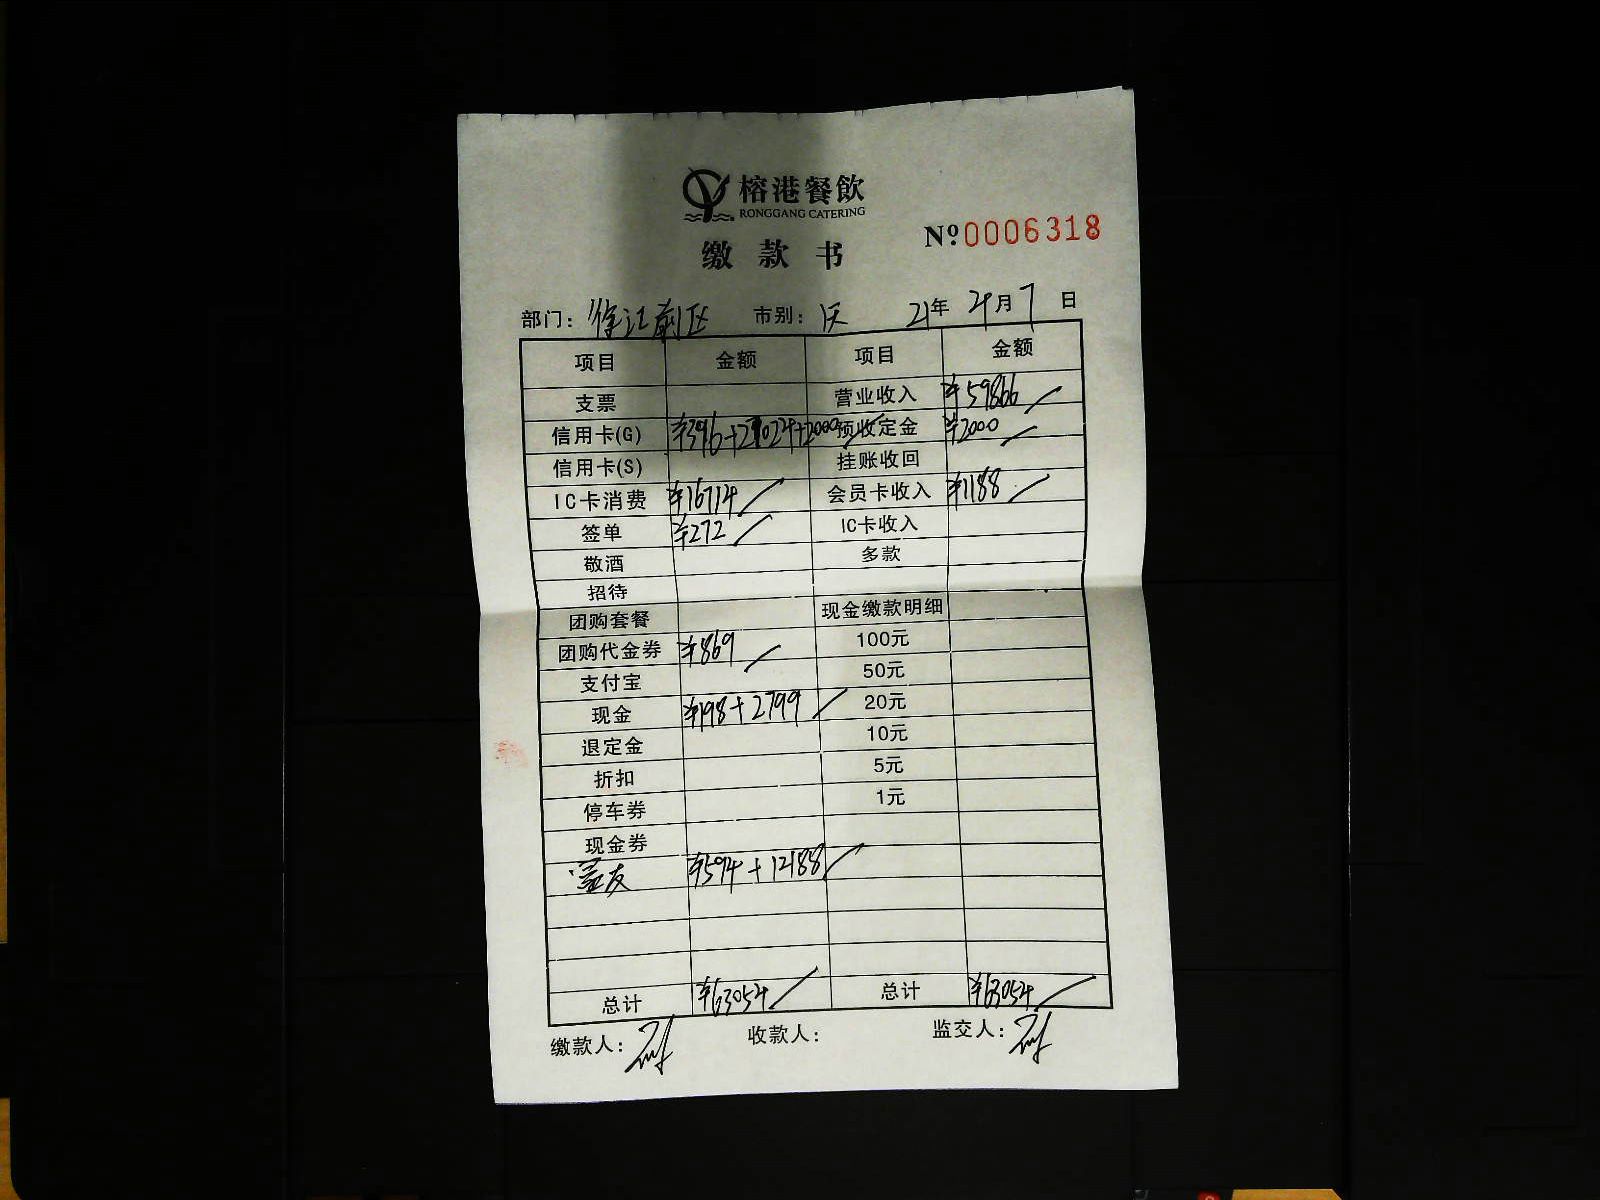 榕港餐飲
RONGGANG CATERING
缴款书
№0006318
部门: 江前区 市别: 天 21年 4月 7日
项目 金额 项目 金额
支票 营业收入 ¥59866
信用卡(G) ¥396+27024+2000 预收定金 ¥2000
信用卡(S) 挂账收回
IC卡消费 ¥16714 会员卡收入 ¥1188
签单 ¥272 IC卡收入
敬酒 多款
招待
团购套餐 现金缴款明细
团购代金券 ¥869 100元
支付宝 50元
现金 ¥198+2799 20元
退定金 10元
折扣 5元
停车券 1元
现金券
¥594+12188
总计 ¥63054 总计 ¥63054
缴款人: 收款人: 监交人: